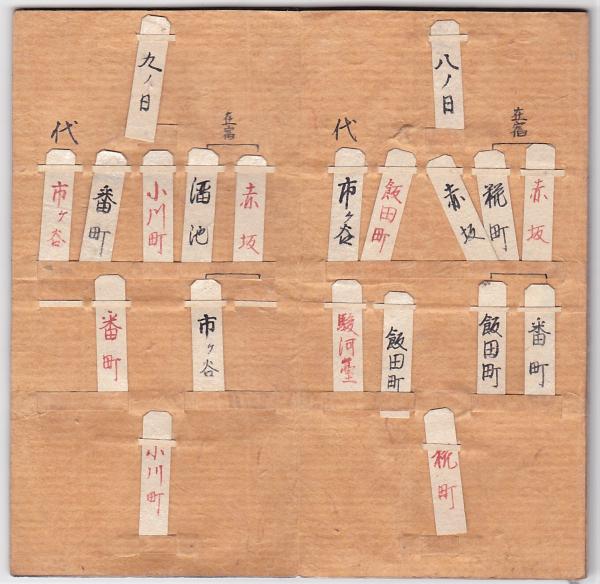 八ノ日
在宿
代
赤坂
糀町
赤坂
飯田町
市ヶ谷
番町
飯田町
飯田町
駿河臺
糀町
九ノ日
在宿
代
赤坂
溜池
小川町
番町
市ヶ谷
市ヶ谷
番町
小川町